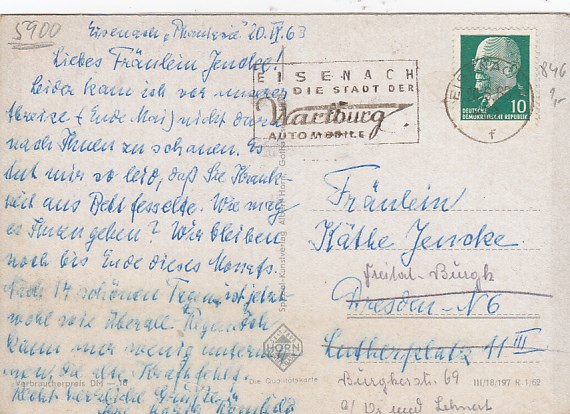 5900
Eisenach, "Phantasie" 20.IX.63
Liebes Fräulein Jencke!
Leider kam ich vor unserer
Abreise (Ende Mai) nicht dazu
nach Ihnen zu schauen. Es
tut mir so leid, daß Sie Krank-
heit ans Bett fesselte. Wie mag
es Ihnen gehen? Wir bleiben
noch bis Ende dieses Monats.
14 schönen Tagen ist jetzt
wohl wie überall Regen
kann nur wenig unterneh-
men, da die
Recht herzliche Grüße
EISENACH
DIE STADT DER
Wartburg
AUTOMOBILE
EISENACH
f
10
DEUTSCHE
DEMOKRATISCHE REPUBLIK
846
Fräulein
Käthe Jencke
Freital-Burgk
Dresden-N6
Lutherplatz 11 III
Burgkerstr. 69
b/ und Lehnert
Albert Horn Gotha
HORN
Verbraucherpreis DM
Die Qualitätskarte
III/18/197 R 1/62